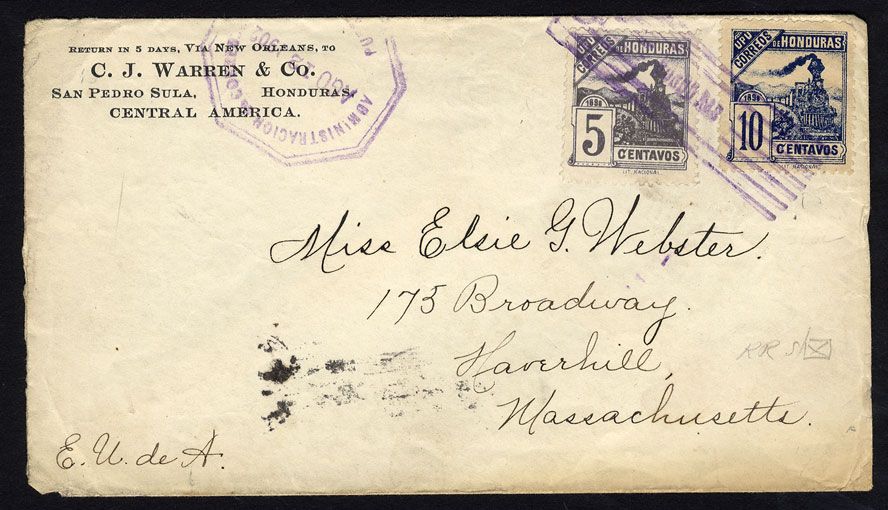 RETURN IN 5 DAYS, VIA NEW ORLEANS, TO
C. J. WARREN & CO.
SAN PEDRO SULA, HONDURAS,
CENTRAL AMERICA.
ADMINISTRACION
1902
UPU
CORREOS
DE HONDURAS
1898
5
CENTAVOS
LIT. NACIONAL
UPU
CORREOS
DE HONDURAS
1898
10
CENTAVOS
LIT. NACIONAL
Miss Elsie G. Webster.
175 Broadway.
Haverhill,
Massachusetts.
E. U. de A.
RR